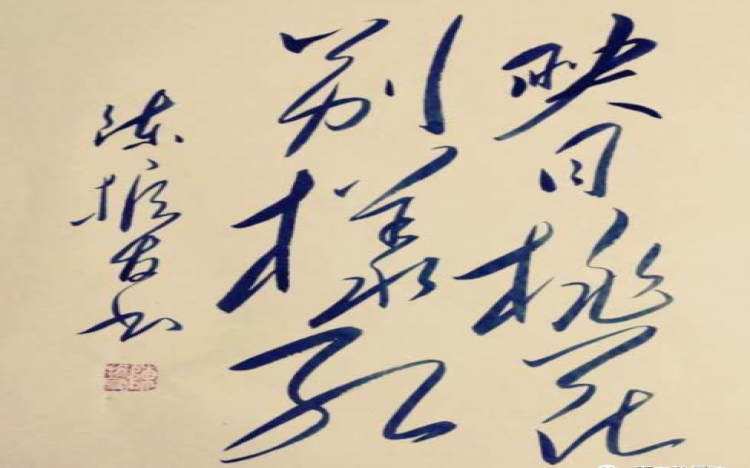 映日桃花
别樣红
陈振书